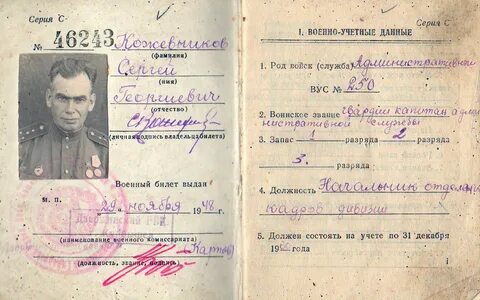 Серия С
№ 46243
Кожевников
(фамилия)
Сергей
(имя)
Георгиевич
(отчество)
(личная подпись владельца билета)
Военный билет выдан
М. П.
29 ноября 1948 г.
(наименование военного комиссариата)
(должность, звание, подпись)
Серия С
1. ВОЕННО-УЧЕТНЫЕ ДАННЫЕ
1. Род войск (служба) Административной
ВУС № 250
2. Воинское звание гвардии капитан адми
нистративной службы
3. Запас 1 разряда 2 разряда
3. разряда
4. Должность Начальник отделен.
кадров дивизии
5. Должен состоять на учете по 31 декабря
19 года
1